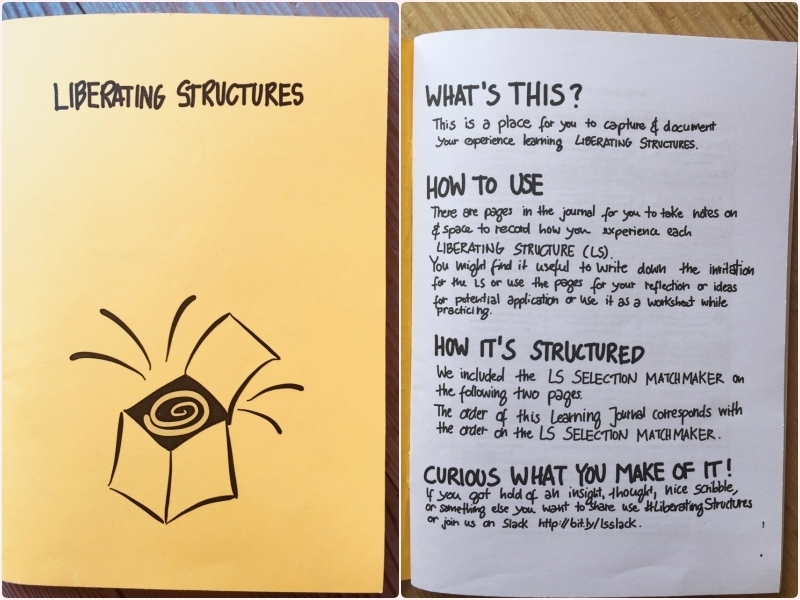 LIBERATING STRUCTURES
WHAT'S THIS?
This is a place for you to capture & document
your experience learning LIBERATING STRUCTURES.
HOW TO USE
There are pages in the journal for you to take notes on
& space to record how you experience each
LIBERATING STRUCTURE (LS).
You might find it useful to write down the invitation
for the LS or use the pages for your reflection or ideas
for potential application or use it as a worksheet while
practicing.
HOW IT'S STRUCTURED
We included the LS SELECTION MATCHMAKER on
the following two pages.
The order of this Learning Journal corresponds with
the order on the LS SELECTION MATCHMAKER.
CURIOUS WHAT YOU MAKE OF IT!
If you got hold of an insight, thought, nice scribble,
or something else you want to share use #LiberatingStructures
or join us on Slack http://bit.ly/lsslack.